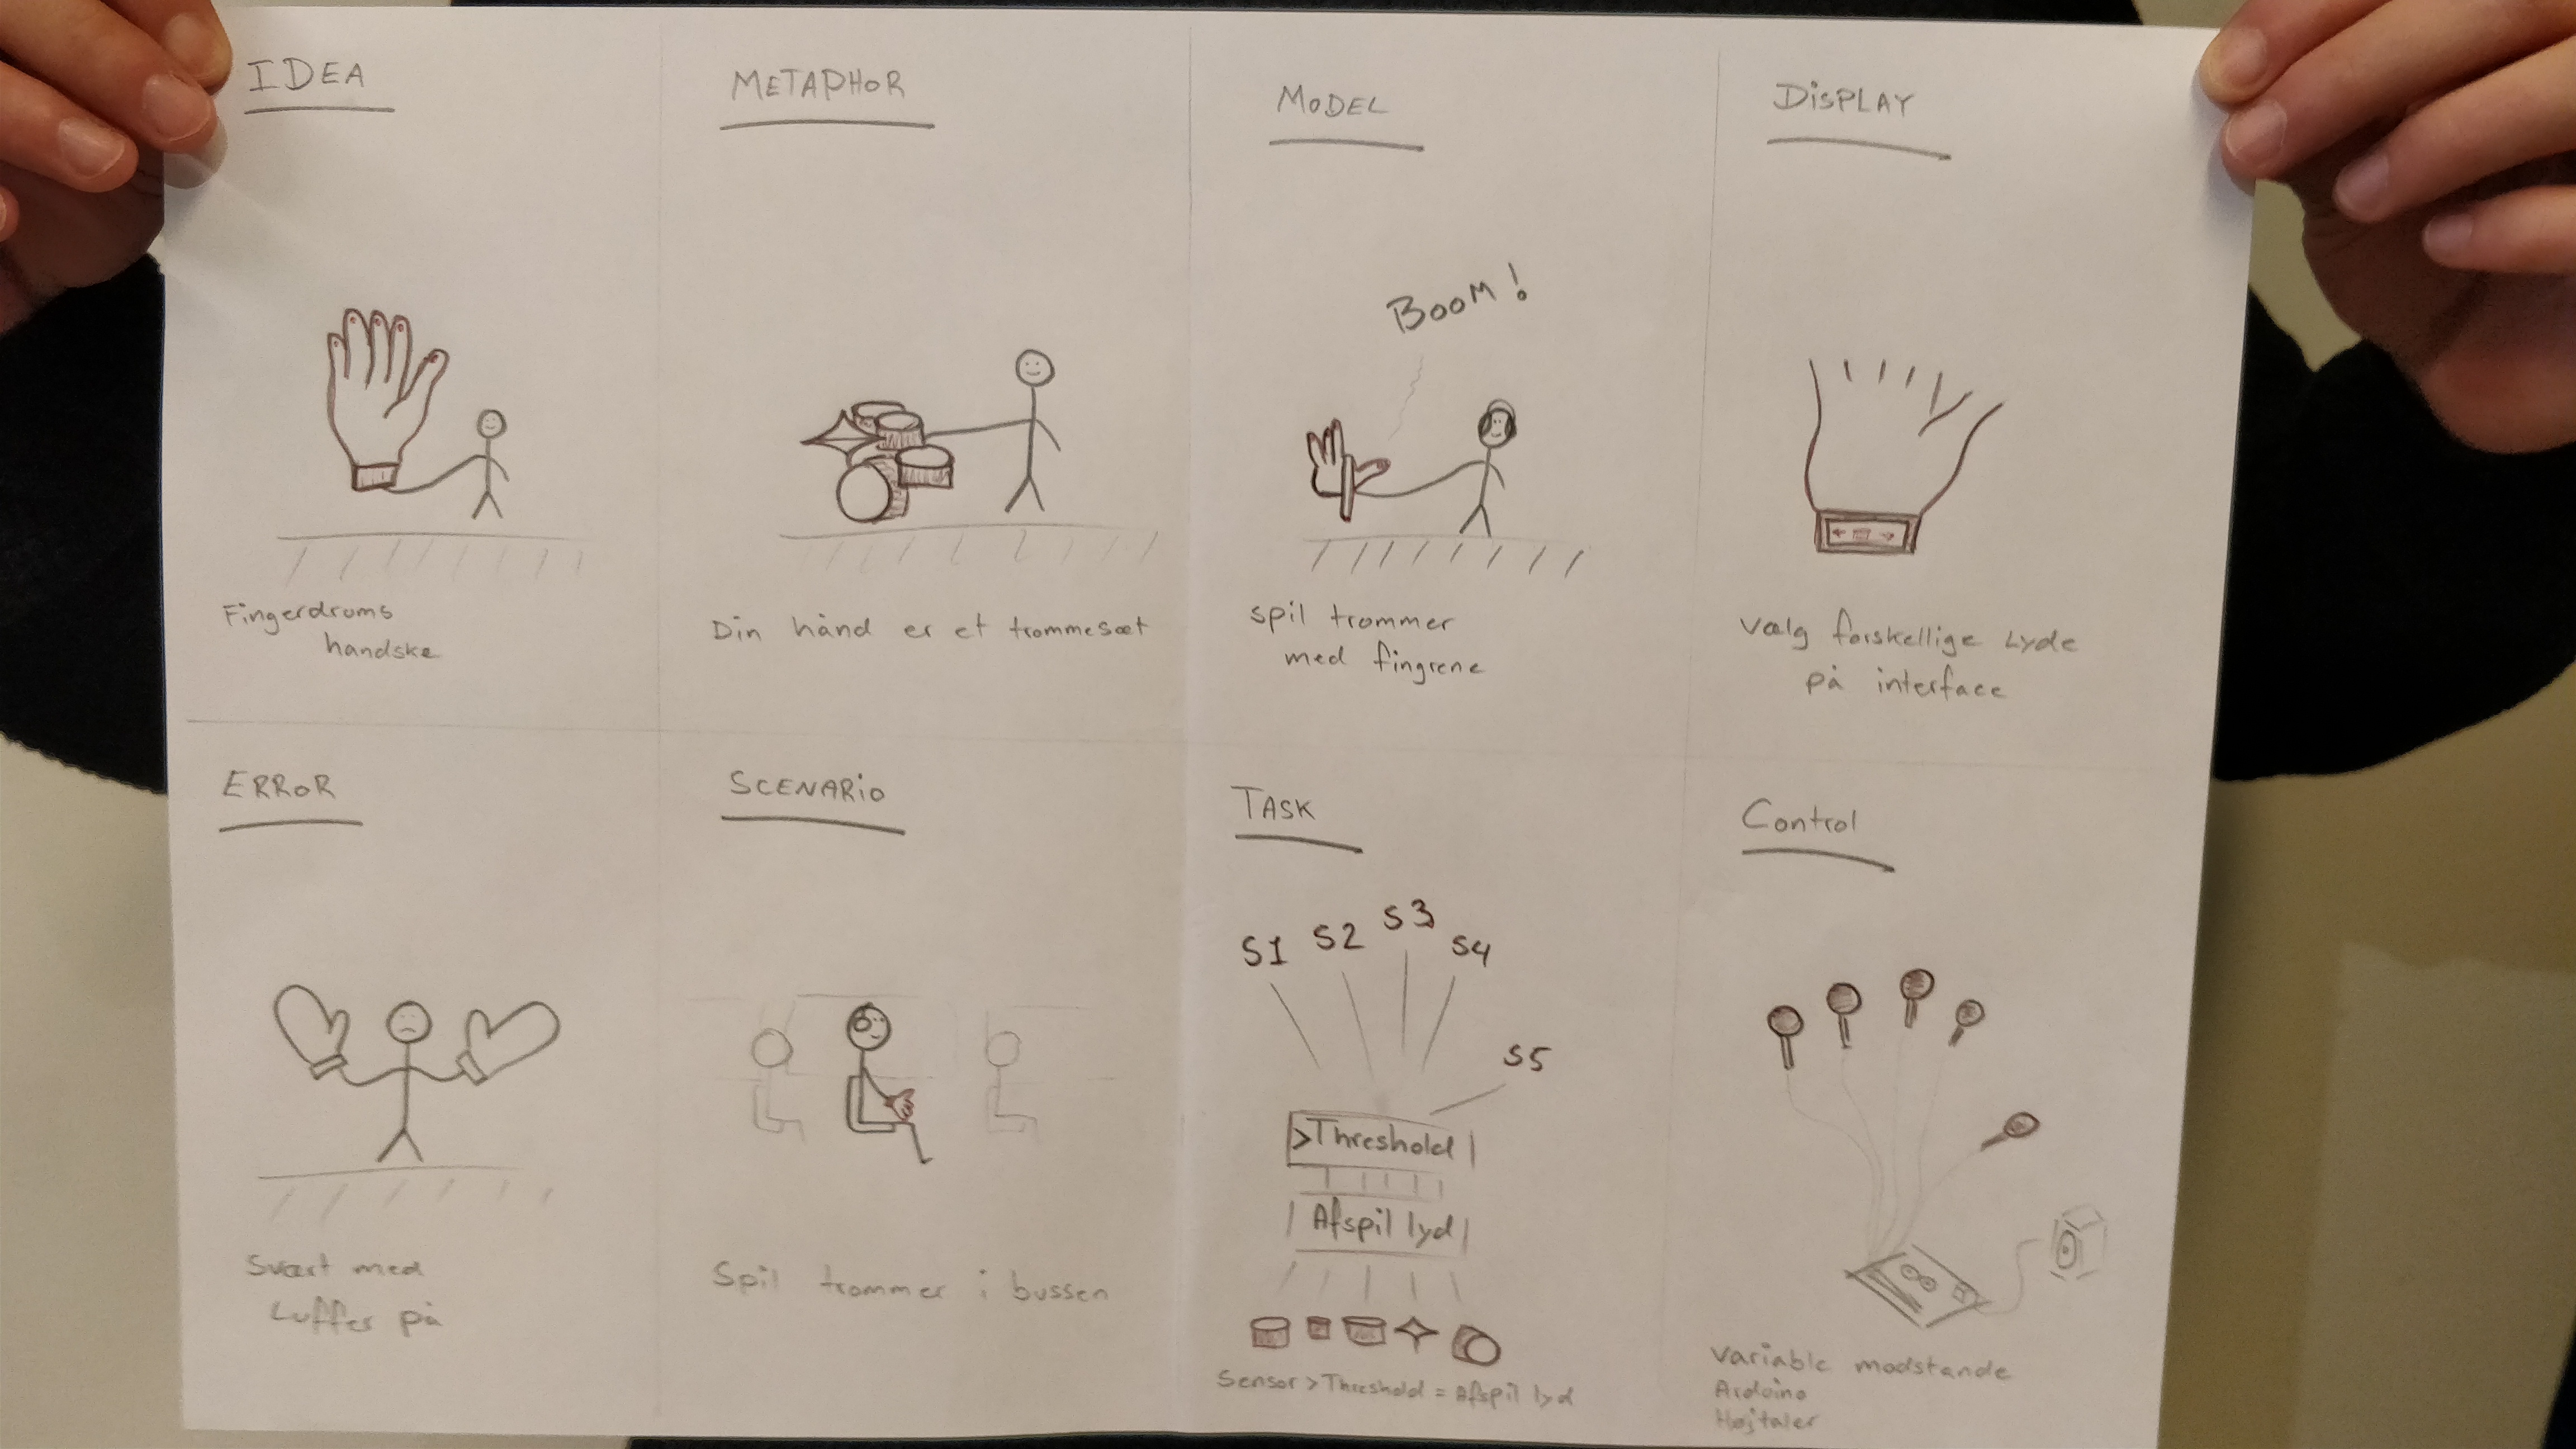 IDEA
Fingerdrums
handske
METAPHOR
Din hånd er et trommesæt
MODEL
BOOM!
spil trommer
med fingrene
DISPLAY
Vælg forskellige Lyde
på interface
ERROR
Svært med
Luffer på
SCENARIO
Spil trommer i bussen
TASK
S1 S2 S3 S4
S5
>Threshold
Afspil lyd
Sensor > Threshold = Afspil lyd
Control
Variable modstande
Arduino
Højtaler